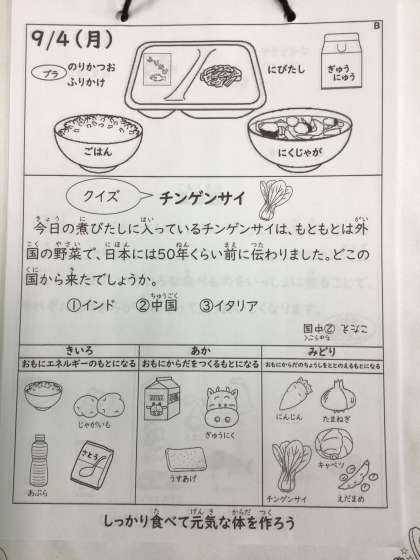 B
9/4(月)
プラ
のりかつお
ふりかけ
にびたし
ぎゅう
にゅう
ごはん
にくじゃが
クイズ
チンゲンサイ
今日の煮びたしに入っているチンゲンサイは、もともとは外
国の野菜で、日本には50年くらい前に伝わりました。どこの
国から来たでしょうか。
①インド ②中国 ③イタリア
こたえ ②中国
きいろ
おもにエネルギーのもとになる
あか
おもにからだをつくるもとになる
みどり
おもにからだのちょうしをととのえるもとになる
じゃがいも
あぶら
さとう
ぎゅうにく
うすあげ
にんじん
たまねぎ
キャベツ
チンゲンサイ
えだまめ
しっかり食べて元気な体を作ろう